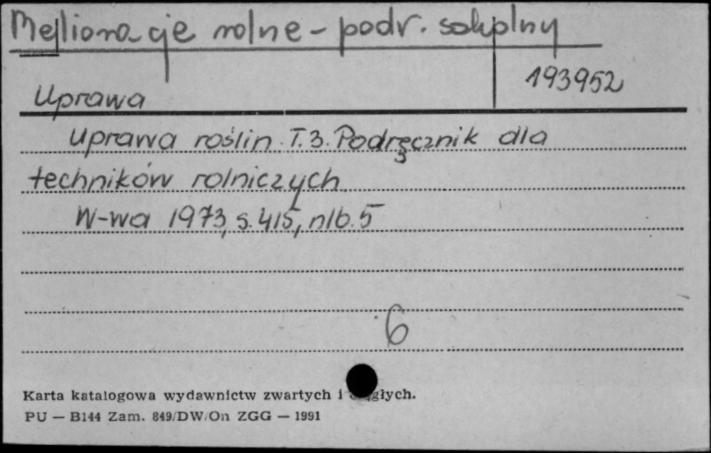 Melioracje rolne - podr. szkolny
193952
Uprawa
Uprawa roślin. T.3. Podręcznik dla
techników rolniczych
W-wa 1973, s. 415, nlb. 5
6
Karta katalogowa wydawnictw zwartych i ciągłych.
PU — B144 Zam. 849/DW/On ZGG — 1991